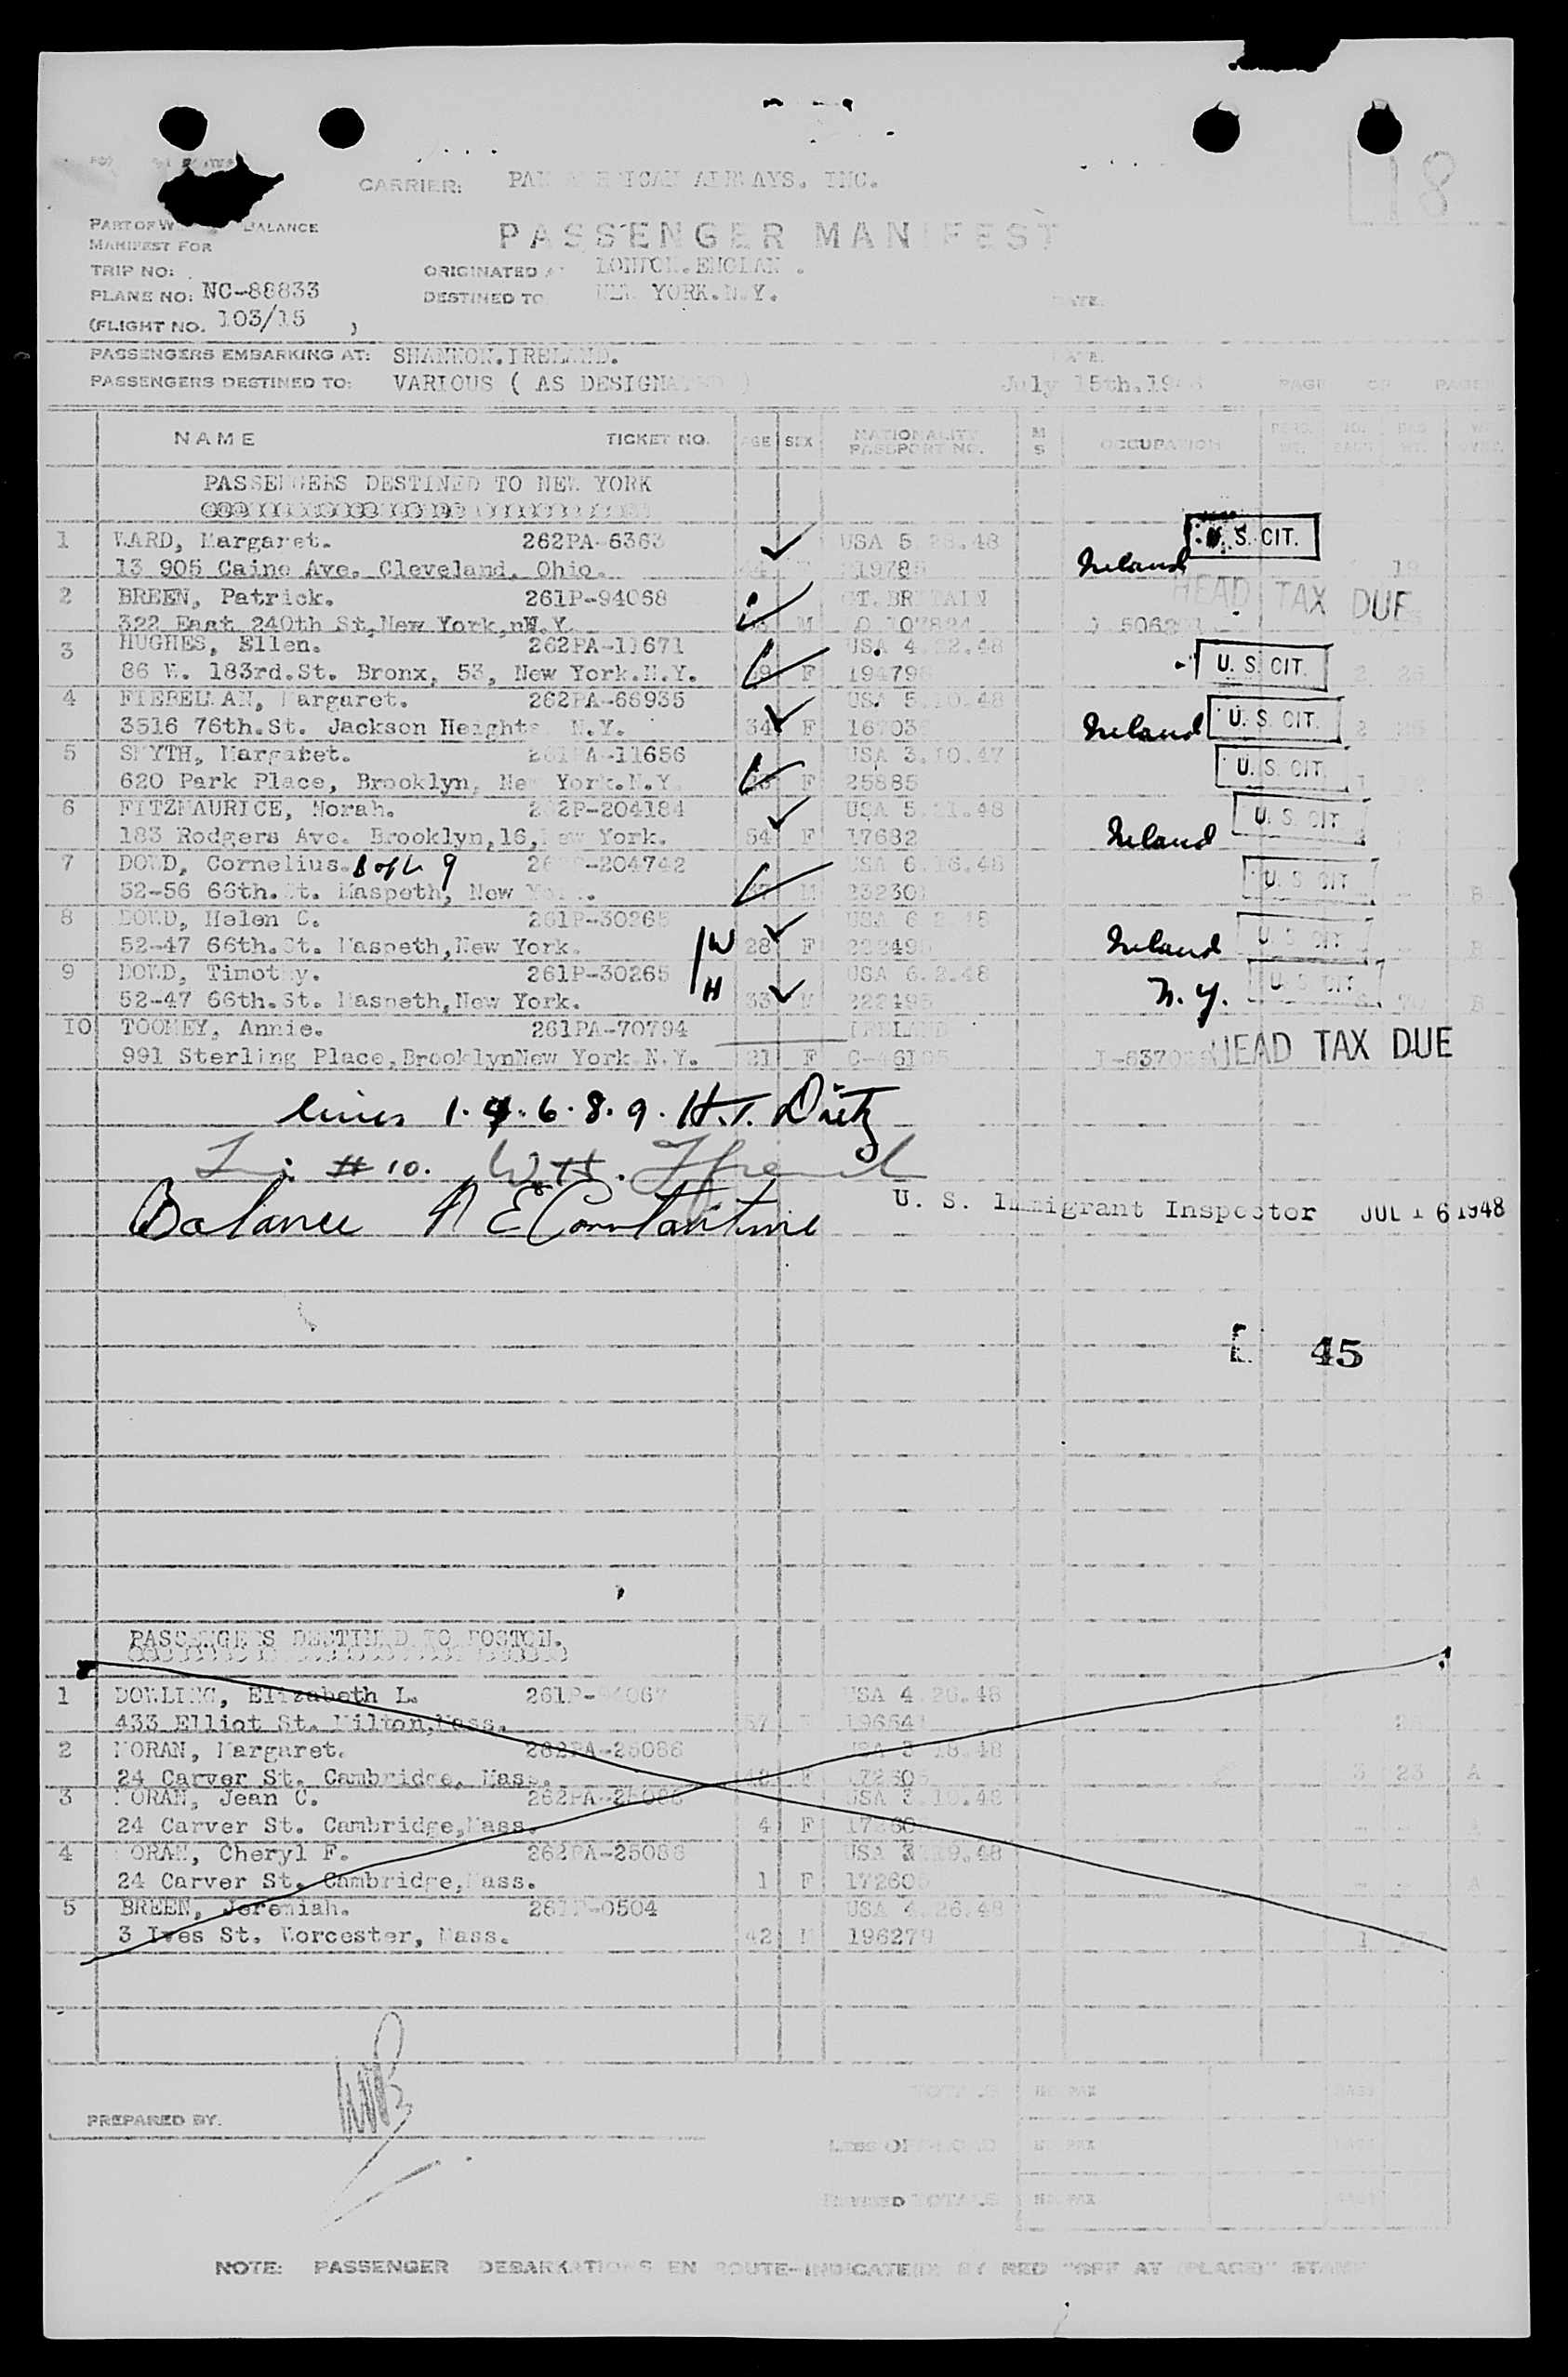 18
CARRIER: PAN AMERICAN AIRWAYS. INC.
PART OF W BALANCE
MANIFEST FOR
PASSENGER MANIFEST
TRIP NO: ORIGINATED AT LONDON.ENGLAN .
PLANE NO: NC-88833 DESTINED TO NEW YORK.N.Y. DATE
(FLIGHT NO. 103/15 )
PASSENGERS EMBARKING AT: SHANNON.IRELAND. DATE
PASSENGERS DESTINED TO: VARIOUS ( AS DESIGNATED ) July 15th.1948 PAGE OF PAGES
NAME TICKET NO. AGE SEX NATIONALITY PASSPORT NO. M S OCCUPATION
PASSENGERS DESTINED TO NEW YORK
1 WARD, Margaret. 262PA-6363 USA 5.28.48 U. S. CIT.
13 905 Caine Ave. Cleveland, Ohio. Ireland 19
2 BREEN, Patrick. 261P-94068 GT.BRITAIN HEAD TAX DUE
322 East 240th St,New York,nN.Y. M
3 HUGHES, Ellen. 262PA-11671 USA 4.22.48 U. S. CIT.
86 W. 183rd.St. Bronx, 53, New York.N.Y. F 2 26
4 FIEBELMAN, Margaret. 262PA-66935 USA 5.10.48 U. S. CIT.
3516 76th.St. Jackson Heights N.Y. 34 F Ireland 2
5 SMYTH, Margaret. 261PA-11656 USA 3.10.47 U. S. CIT.
620 Park Place, Brooklyn, New York.N.Y F 25885
6 FITZMAURICE, Norah. 262P-204184 USA 5.21.48 U. S. CIT
183 Rodgers Ave. Brooklyn,16,New York. 54 F 17682 Ireland
7 DOWD, Cornelius. Bof L 9 26 -204742 USA 6.16.48 U. S. CIT
52-56 66th.St. Maspeth, New York. M B
8 DOWD, Helen C. 261P-30265 USA 6.2.48 U. S. CIT
52-47 66th.St. Maspeth,New York. W 28 F Ireland B
9 DOWD, Timothy. 261P-30265 USA 6.2.48 U. S. CIT
52-47 66th.St. Maspeth,New York. H 33 M N.Y. B
10 TOOMEY, Annie. 261PA-70794 IRELAND
991 Sterling Place,BrooklynNew York N.Y. 21 F HEAD TAX DUE
lines 1.4.6.8.9. H.T. Dietz
# 10. W.H.
Balance R E Constantine U. S. Immigrant Inspector JUL 16 1948
45
PASSENGERS DESTINED TO BOSTON.
1 DOWLING, Elizabeth L. 261P-94067 USA 4.26.48
433 Elliot St. Milton,Mass. 57
2 MORAN, Margaret. 262PA-25086 USA 3 18.48
24 Carver St. Cambridge, Mass. F 3 23 A
3 MORAN, Jean C. 262PA-25086 USA 3.19.48
24 Carver St. Cambridge,Mass. 4 F A
4 MORAN, Cheryl F. 262PA-25086 USA 3.19.48
24 Carver St. Cambridge,Mass. 1 F A
5 BREEN, Jeremiah. 261P-0504 USA 4.26.48
3 Ives St. Worcester, Mass. 42 M 196279 1
TOTALS NO. PAX
PREPARED BY.
LESS OFFLOAD NO. PAX
REVISED TOTALS NO. PAX
NOTE: PASSENGER DEBARKATIONS EN ROUTE-INDICATED BY RED "OFF AT (PLACE)" STAMP